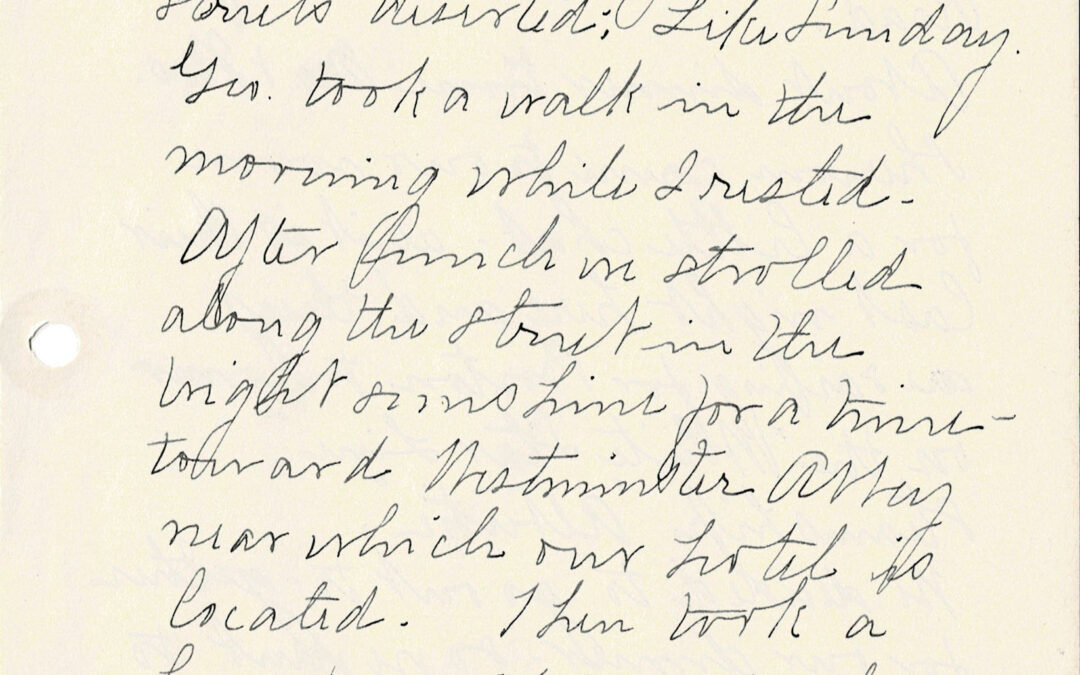 streets deserted; Like Sunday.
Geo. took a walk in the
morning while I rested.
After lunch we strolled
along the street in the
bright sunshine for a time -
toward Westminster Abbey
near which our hotel is
located. Then took a